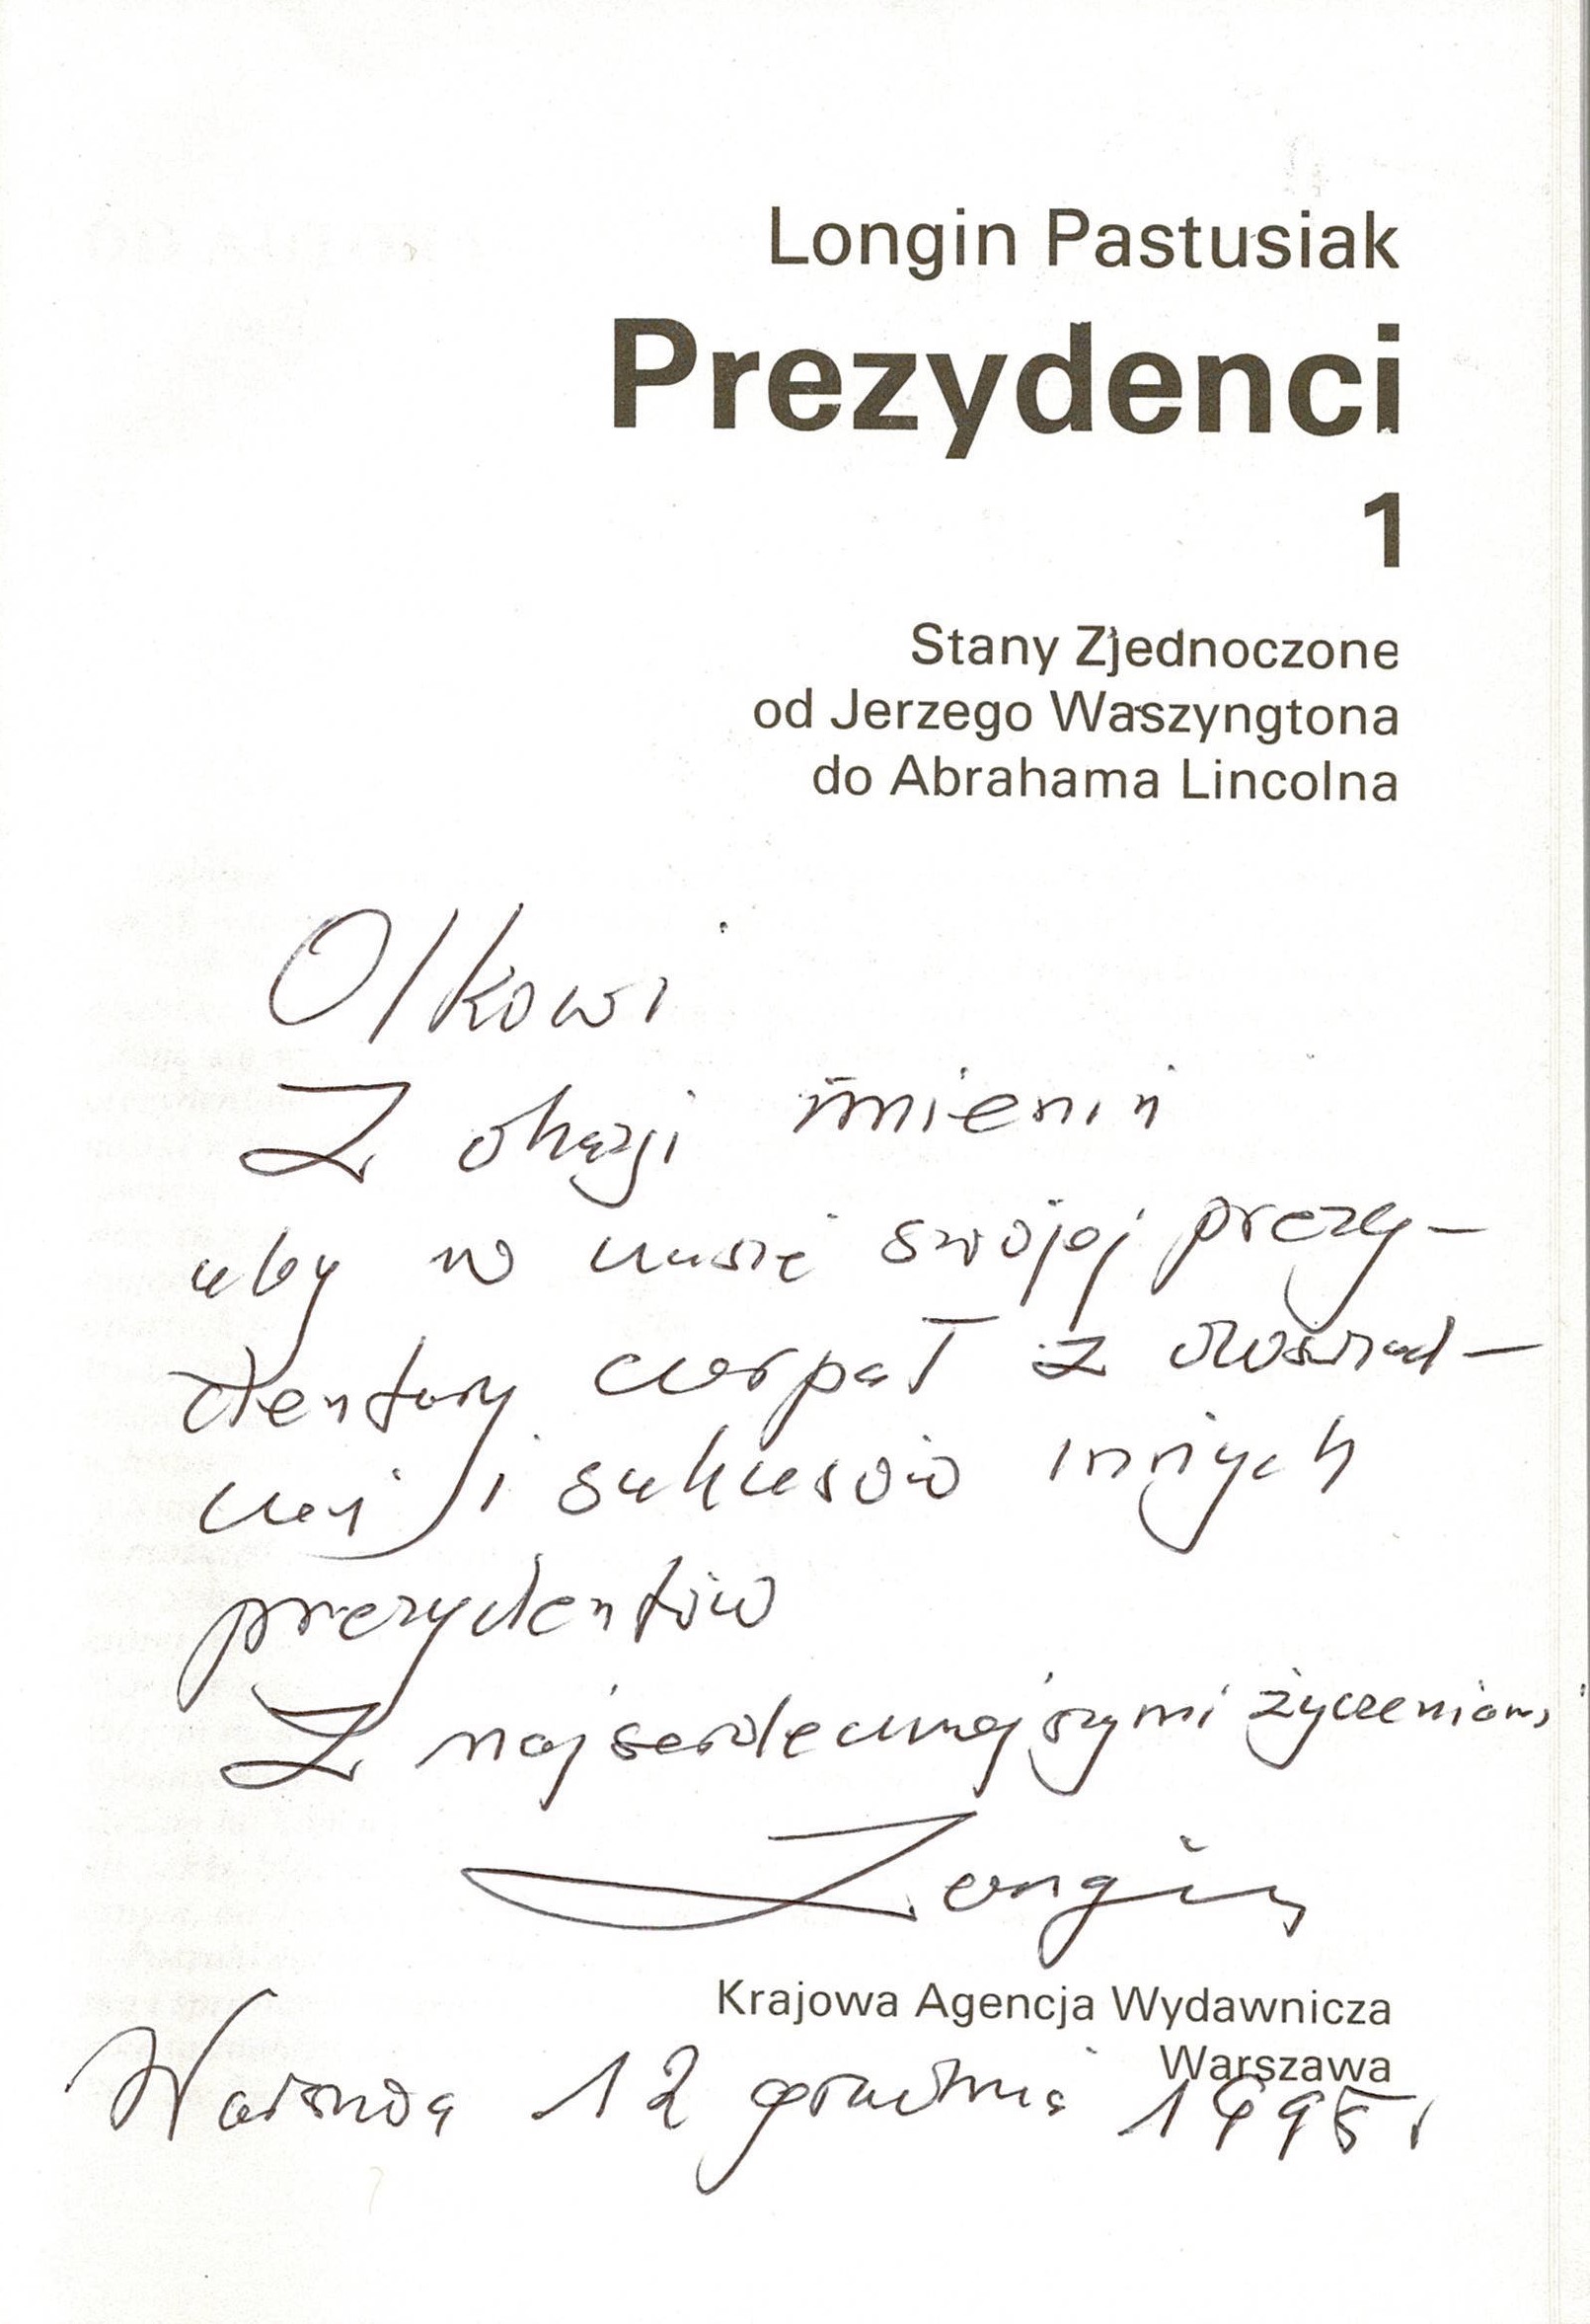 Longin Pastusiak
Prezydenci
1
Stany Zjednoczone
od Jerzego Waszyngtona
do Abrahama Lincolna
Olkowi
Z okazji imienin
aby w czasie swojej prezy-
dentury czerpał z doświad-
czeń i sukcesów innych
prezydentów
Z najserdeczniejszymi życzeniami
Longin
Krajowa Agencja Wydawnicza
Warszawa
Warszawa 12 grudnia 1995 r